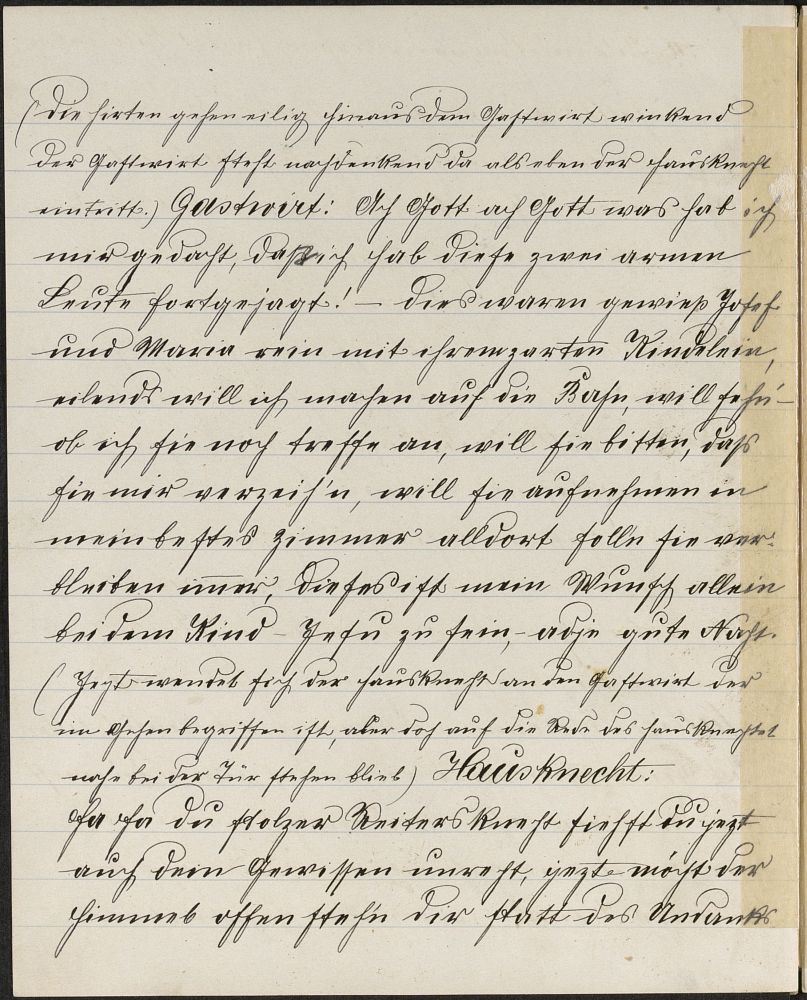 (Die Hirten gehen eilig hinaus dem Gastwirt winkend
Der Gastwirt steht nachdenkend da als eben der Hausknecht
eintritt.) Gastwirt: Ach Gott ach Gott was hab ich
mir gedacht, daß ich hab diese zwei armen
Leute fortgejagt! – dies waren gewieß Josef
und Maria rein mit ihrem zarten Kindelein,
eilends will ich machen auf die Bahn, will sehn' –
ob ich sie noch treffe an, will sie bitten, daß
sie mir verzeih'n, will sie aufnehmen in
mein bestes Zimmer alldort solln sie ver-
bleiben immer, dieses ist mein Wunsch allein
bei dem Kind – Jesu zu sein, – adje gute Nacht.
(Jezt wendet sich der Hausknecht an den Gastwirt der
im Gehen begriffen ist, aber doch auf die Rede des Hausknechtet
nahe bei der Tür stehen blieb) Hausknecht:
Ha ha du stolzer Reitersknecht siehst du jezt
auch dein Gewissen unrecht, jezt möcht der
Himmel offen stehn dir statt des Undanks